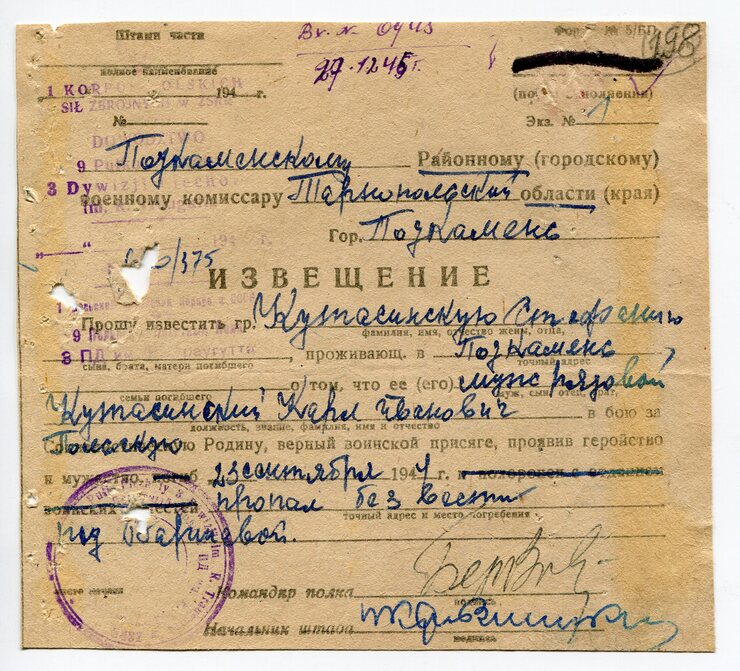 Штамп части
Вх. № 0943
Форма № 5/БП
198
полное наименование
27.12.45 г.
1 KORPUS POLSKICH
194 г.
(по заполнении)
SIŁ ZBROJNYCH w ZSRR
№
Экз. № 1
DOWÓDZTWO
9
Подкаменскому Районному (городскому)
3 Dywizji Piechoty
военному комиссару Тарнопольский области (края)
194 г.
Гор. Подкамень
/375
ИЗВЕЩЕНИЕ
Прошу известить гр. Кутасинскую Стефанию
фамилия, имя, отчество жены, отца,
сына, брата, матери погибшего
, проживающ. в Подкамень
точный адрес
семьи погибшего
о том, что ее (его) муж рядовой
муж, сын, отец, брат,
Кутасинский Карл Иванович в бою за
должность, звание, фамилия, имя и отчество
Польскую
Родину, верный воинской присяге, проявив геройство
и мужество, погиб 23 сентября 1944 и похоронен с отданием
воинских почестей пропал без вести
точный адрес и место погребения
под Варшавой.
Командир полка
подпись
Начальник штаба
подпись